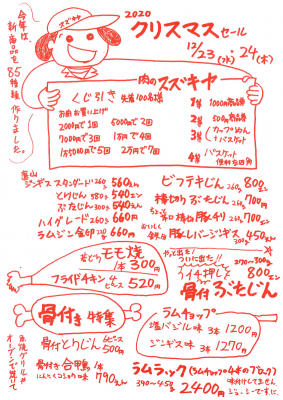 2020
クリスマスセール
12/23(水)・24(木)
スズキヤ
今年は、
新商品を85種類作りました。
肉のスズキヤ
くじ引き 先着100名様
お肉お買い上げ
2000円で1回 5000円で2回
7000円で3回 1万円で4回
1万5000円で5回 2万円で7回
1等 1000円商品
2等 500円商品
3等 カップめん
+バスケット
4等 バスケット
遠山
ジンギス スタンダード260g 560えん
とりじん 980g 540エン
ぶたじん 300g 540えん
ハイグレード260g 660円
ラムジン金印220g 660円
ビフテキじん 260g 800
棒切りぶたじん 260g 700円
豚レバージンギス 450えん
300g
若どり モモ焼
1本 300円
フライドチキン 4ピース 520円
やっと出た!
ついに出た!!
270〜300g
ウイチ押しを 800エン
骨付ぶたじん
骨付き特集
骨付とりじん 4ピース
500円
骨付き合鴨 1本
にんにくコショウ味 790えん
魚焼グリルやオーブンで焼けて
ラムチョップ
塩バジル味 3本 1200円
ジンギス味 3本 1270円
ラムラック(ラムチョップ4本のブロック)
390〜450g 2400円
味付けしてません
ジューシーですぅ